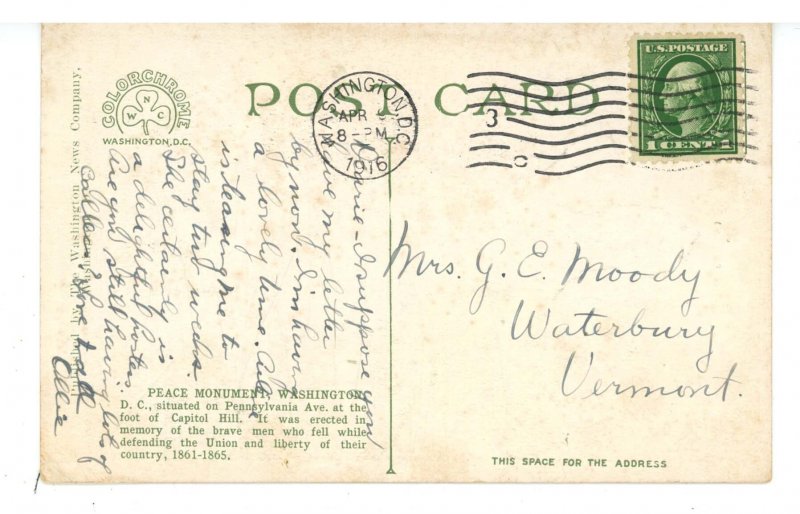 POST CARD
COLORCHROME
W N C
WASHINGTON, D.C.
WASHINGTON, D.C.
APR
8-PM
1916
3
U.S. POSTAGE
1 CENT 1
I suppose you
have my letter
by now. I'm having
a lovely time.
is teasing me to
stay two weeks.
She certainly is
a delightful hostess
Are you still having lots of
Love to all
Ollie
Mrs. G. E. Moody
Waterbury
Vermont.
PEACE MONUMENT, WASHINGTON,
D. C., situated on Pennsylvania Ave. at the
foot of Capitol Hill. It was erected in
memory of the brave men who fell while
defending the Union and liberty of their
country, 1861-1865.
THIS SPACE FOR THE ADDRESS
Published by The Washington News Company,